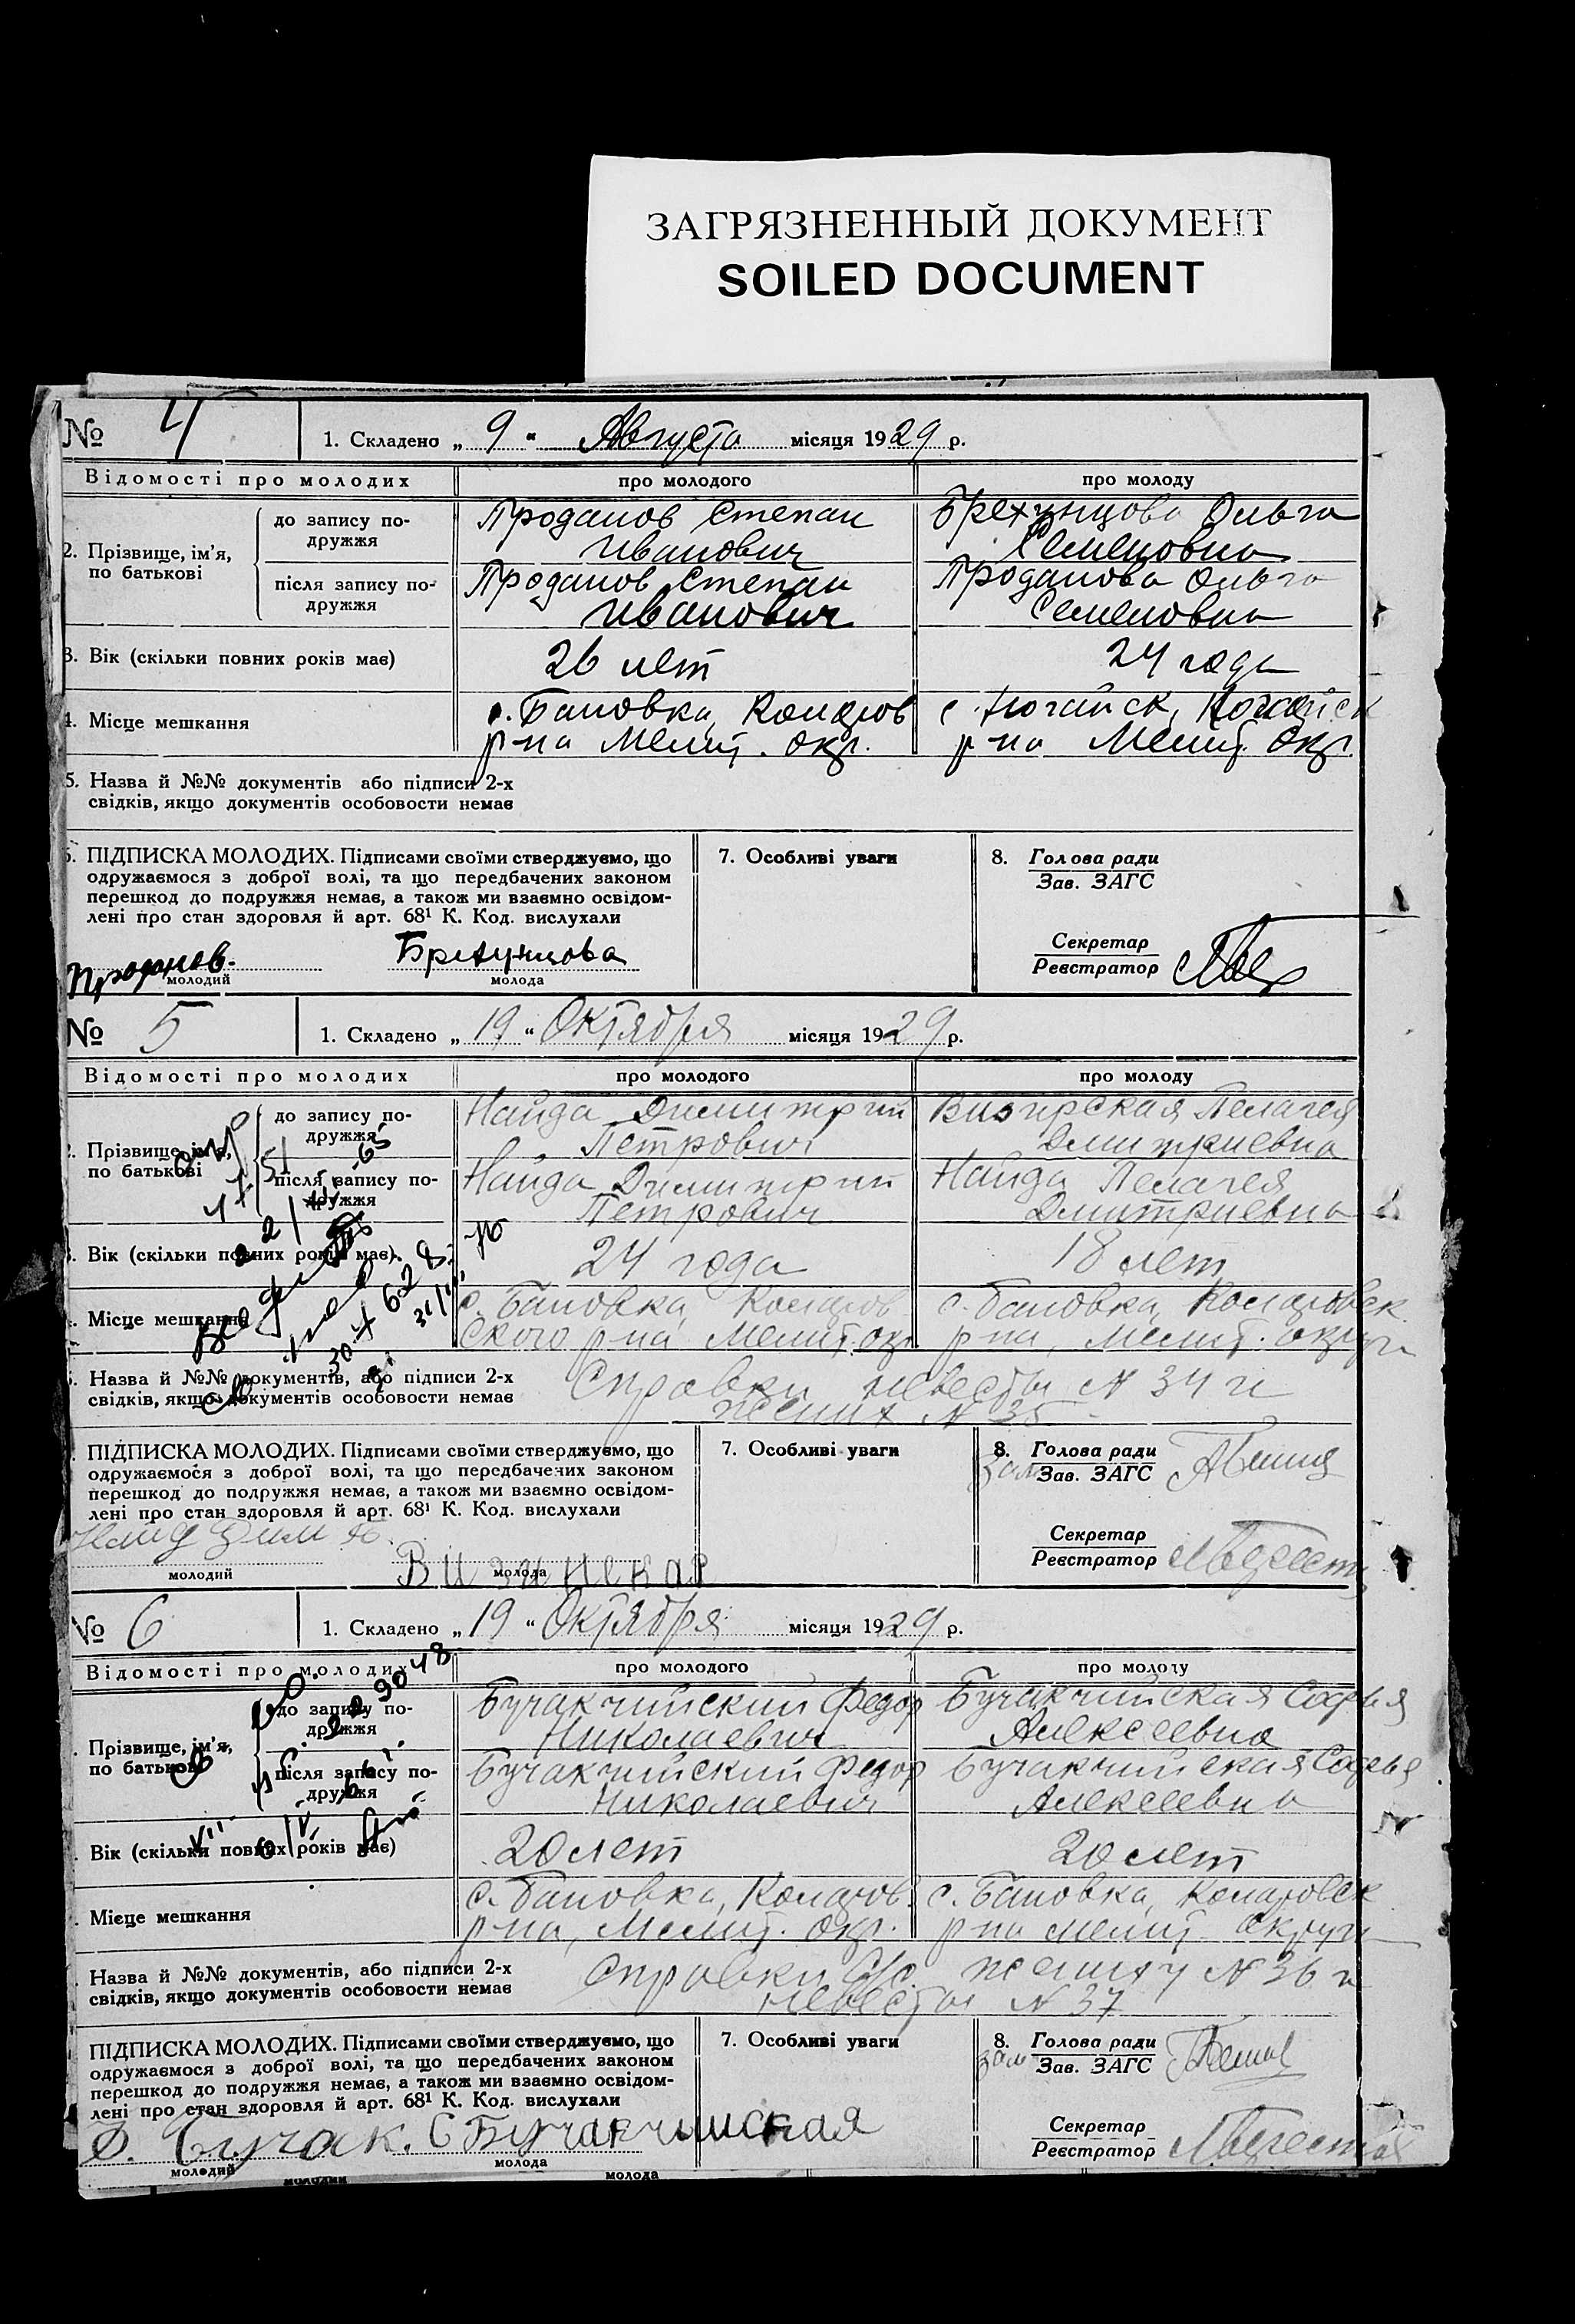 ЗАГРЯЗНЕННЫЙ ДОКУМЕНТ
SOILED DOCUMENT
№ 4
1. Складено „ 9 “ Августа місяця 1929 р.
Відомості про молодих
про молодого
про молоду
2. Прізвище, ім’я, по батькові
до запису подружжя
Проданов Степан
Иванович
Брехунцова Ольга
Семеновна
після запису подружжя
Проданов Степан
Иванович
Проданова Ольга
Семеновна
3. Вік (скільки повних років має)
26 лет
24 года
4. Місце мешкання
с. Бановка, Комаров
р-на Мелит. окр.
с. Ногайск, Ногайск
р-на Мелит. окр.
5. Назва й №№ документів або підписи 2-х
свідків, якщо документів особовости немає
6. ПІДПИСКА МОЛОДИХ. Підписами своїми стверджуємо, що
одружаємося з доброї волі, та що передбачених законом
перешкод до подружжя немає, а також ми взаємно освідом-
лені про стан здоровля й арт. 68¹ К. Код. вислухали
Проданов.
молодий
Брехунцова
молода
7. Особливі уваги
8. Голова ради
Зав. ЗАГС
Секретар
Реєстратор
№ 5
1. Складено „ 19 “ Октября місяця 1929 р.
Відомості про молодих
про молодого
про молоду
2. Прізвище, ім’я,
по батькові
до запису по-
дружжя
Найда Димитрий
Петрович
Визирская Пелагея
Дмитриевна
після запису по-
дружжя
Найда Димитрий
Петрович
Найда Пелагея
Дмитриевна
Вік (скільки повних років має)
24 года
18 лет
Місце мешкання
с. Бановка, Комаров
ского р-на Мелит. окр.
с. Бановка, Комаровск.
р-на, Мелит. округи
Назва й №№ документів, або підписи 2-х
свідків, якщо документів особовости немає
Справки невесты N 34 и
жених N 35
ПІДПИСКА МОЛОДИХ. Підписами своїми стверджуємо, що
одружаємося з доброї волі, та що передбачених законом
перешкод до подружжя немає, а також ми взаємно освідом-
лені про стан здоровля й арт. 68¹ К. Код. вислухали
молодий
молода
7. Особливі уваги
8. Голова ради
зам Зав. ЗАГС
Секретар
Реєстратор
№ 6
1. Складено „ 19 “ Октября місяця 1929 р.
Відомості про молодих
про молодого
про молоду
Прізвище, ім’я,
по батькові
до запису по-
дружжя
Бучакчийский Федор
Николаевич
Бучакчийская Софья
Алексеевна
після запису по-
дружжя
Бучакчийский Федор
Николаевич
Бучакчийская Софья
Алексеевна
Вік (скільки повних років має)
20 лет
20 лет
Місце мешкання
с. Бановка, Комаров.
р-на, Мелит. окр.
с. Бановка, Комаровск
р-на Мелит. округи
Назва й №№ документів, або підписи 2-х
свідків, якщо документів особовости немає
Справки С/С. жениху N 36 и
невесты N 37
ПІДПИСКА МОЛОДИХ. Підписами своїми стверджуємо, що
одружаємося з доброї волі, та що передбачених законом
перешкод до подружжя немає, а також ми взаємно освідом-
лені про стан здоровля й арт. 68¹ К. Код. вислухали
Ф. Бучак.
молодий
С Бучакчийская
молода
7. Особливі уваги
8. Голова ради
зам Зав. ЗАГС
Секретар
Реєстратор
молодий
молода